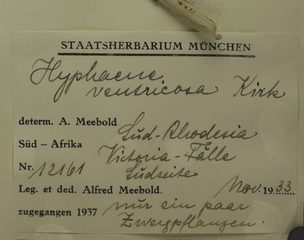 STAATSHERBARIUM MÜNCHEN
Hyphaene
ventricosa Kirk
determ. A. Meebold
Süd-Rhodesia
Süd - Afrika
Victoria-Fälle
Nr. 12161
Südseite
Leg. et ded. Alfred Meebold.
Nov. 1933
zugegangen 1937
nur ein paar
Zwergpflanzen.